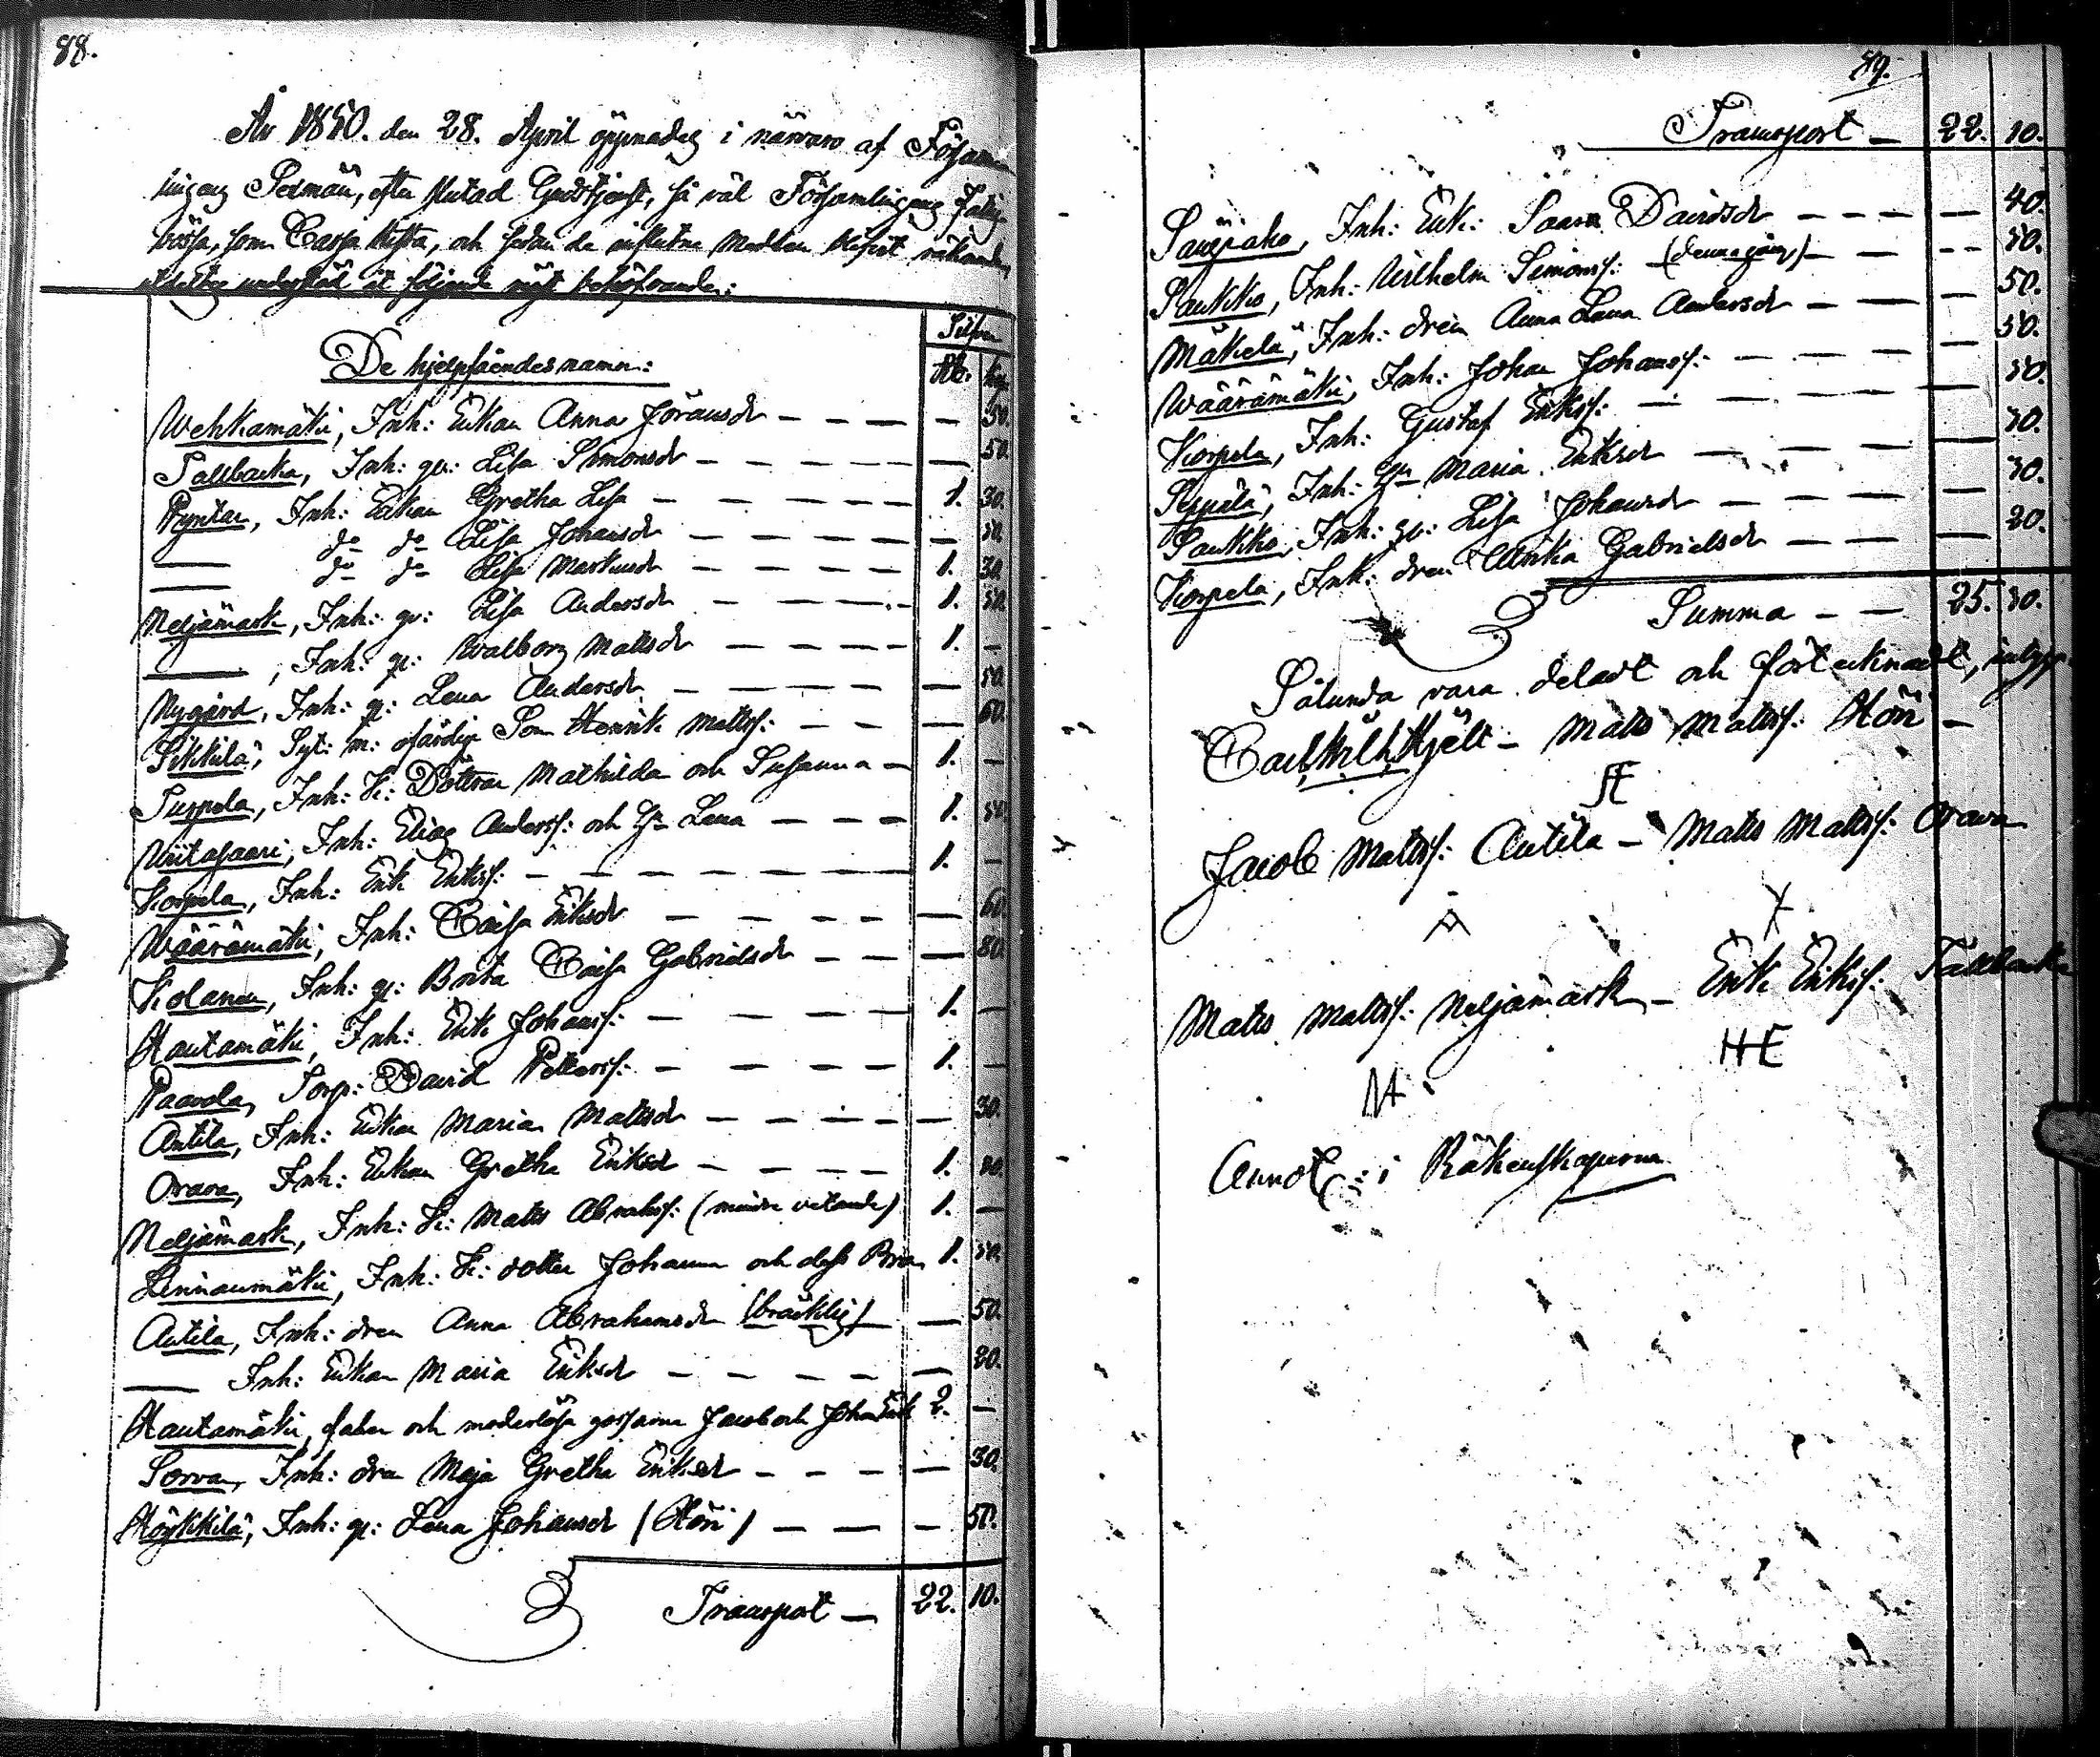 88.
År 1850. den 28. April öppnades i närvaro af Försam
lingens Sexmän, efter slutad Gudstjenst, så väl Församlingens Fattig
bössa, som Cassa kista, och sedan de influtne medlen blifvit räknade,
understöd åt följande mäst behöfvande:
De hjelpsåendes namn:
Silfver
Rb. kop.
Wehkamäki, Inh: Enkan Anna Jöransdr - - - — 50.
Tallbacka, Inh: gu: Lisa Simonsdr - - - — 50.
Ryntar, Inh: Enkan Gretha Lisa - - - 1. 30.
— do do Lisa Johansdr - - - — 50.
— do do Lisa Markusdr - - - 1. 30.
Neljämark, Inh: gu: Lisa Andersdr - - - 1. 50.
—, Inh: gu: Walborg Mattsdr - - - 1. —
Nygård, Inh: gu: Lena Andersdr - - - — 50.
Sikkilä, Syt: m: ofärdige Son Henrik Mattss: - - — 60.
Surpela, Inh: Döttrar Mathilda och Susanna - 1. —
Wiitasaari, Inh: Elias Anderss: och Hu Lena - - - 1. 50.
Korpela, Inh: Erik Erikss: - - - 1. —
Wäärämäki, Inh: Caisa Eriksdr - - - — 60.
Kolanen, Inh: gu: Brita Caisa Gabrielsdr - - — 80.
Hautamäki, Inh: Erik Johanss: - - - 1. —
Paavola, Torp: David Petterss: - - - 1. —
Antila, Inh: Enkan Maria Mattsdr - - - — 30.
Orava, Inh: Enkan Gretha Eriksd - - - 1. 20.
Neljämark, Inh: Matts Abrahss: (mindre vetande) 1. —
Linnanmäki, Inh: dotter Johanna och dess Bror 1. 50.
Antila, Inh: dren Anna Abrahamsdr (bräcklig) — 50.
— Inh: Enkan Maria Eriksdr - - - — 20.
Hautamäki, fader och moderlösa gossarne Jacob och Johan Erik 2. —
Sorva, Inh: dra Maja Gretha Eriksdr - - - — 30.
Höykkilä, Inh: gu: Lena Johansdr (Höri) — — — 50.
Transport — 22. 10.
89.
Transport — 22. 10.
Inh: Enk: Saara Davidsdr - - - — 40.
Saukko, Inh: Wilhelm Simonss: (denna gång) — — 50.
Mäkelä, Inh: dren Anna Lena Andersdr — — — 50.
Wäärämäki, Inh: Johan Johanss: - - - 50.
Korpela, Inh: Gustaf Erikss: - - - 50.
Seppälä, Inh: Maria Eriksdr - - - 30.
Saukko, Inh: gu: Lisa Johansdr - - - 30.
Korpela, Inh: dren Ulrika Gabrielsdr - - — 20.
Summa - — 25. 30.
Sålunda vara deladt och förtecknadt, intyga
Carl Wilh Hjelt - Matts Mattss: Höri -
Jacob Mattss: Antila - Matts Mattss: Orava
Matts Mattss: Neljämark - Erik Erikss: Tallbacka
HE
Annot: i Räkenskaperna